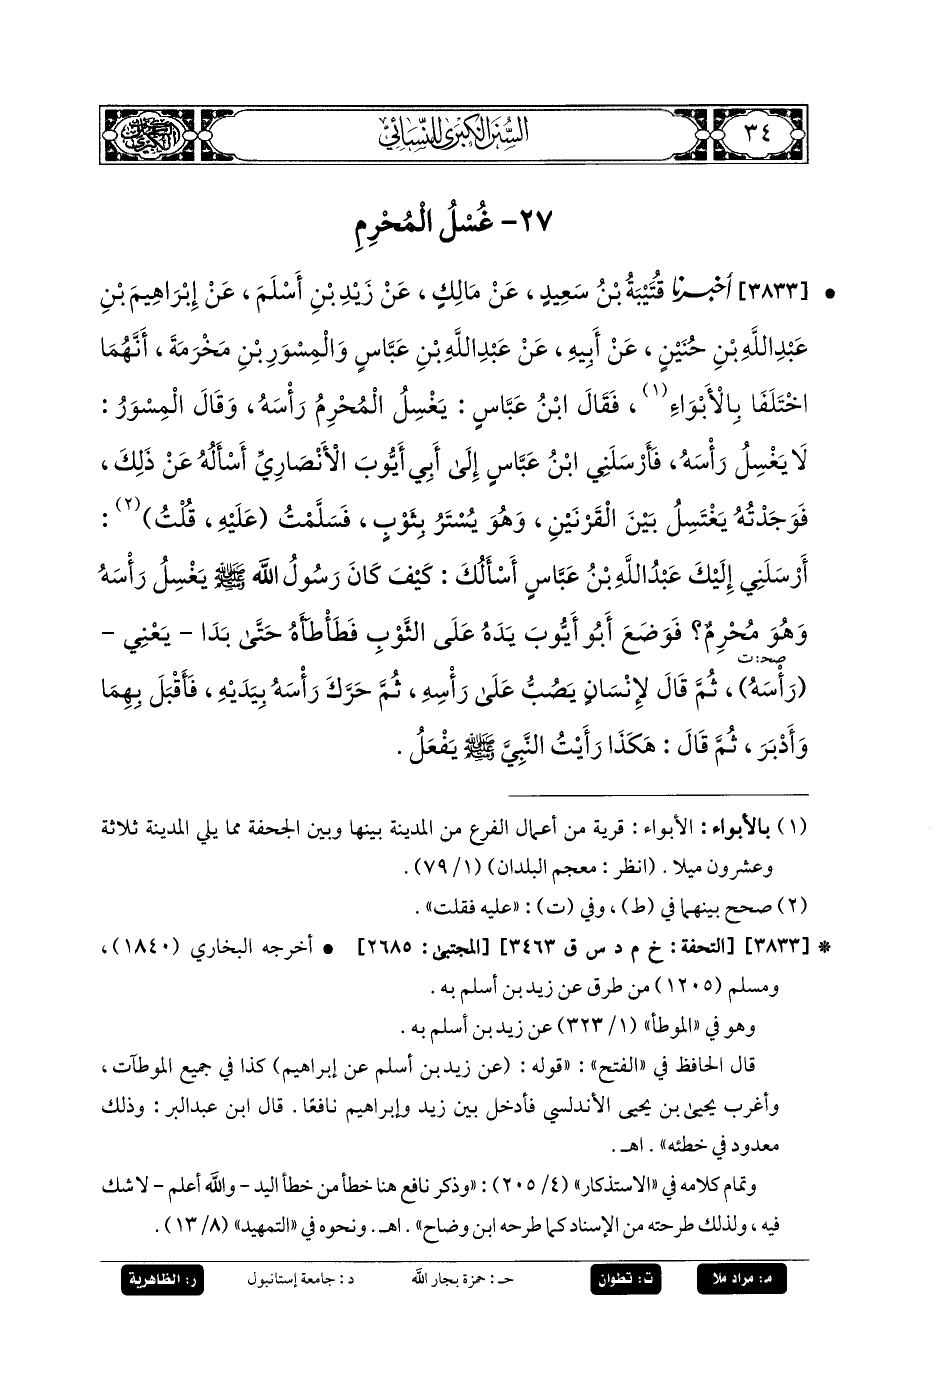 ٣٤
السُّنَنُ الكِبْرَى لِلنَّسَائِيِّ
٢٧- غُسْلُ الْمُحْرِمِ
• [٣٨٣٣] أَخْبَرَنَا قُتَيْبَةُ بْنُ سَعِيدٍ، عَنْ مَالِكٍ، عَنْ زَيْدِ بْنِ أَسْلَمَ، عَنْ إِبْرَاهِيمَ بْنِ
عَبْدِ اللَّهِ بْنِ حُنَيْنٍ، عَنْ أَبِيهِ، عَنْ عَبْدِ اللَّهِ بْنِ عَبَّاسٍ وَالْمِسْوَرِ بْنِ مَخْرَمَةَ، أَنَّهُمَا
اخْتَلَفَا بِالْأَبْوَاءِ(١)، فَقَالَ ابْنُ عَبَّاسٍ: يَغْسِلُ الْمُحْرِمُ رَأْسَهُ، وَقَالَ الْمِسْوَرُ:
لَا يَغْسِلُ رَأْسَهُ، فَأَرْسَلَنِي ابْنُ عَبَّاسٍ إِلَى أَبِي أَيُّوبَ الْأَنْصَارِيِّ أَسْأَلُهُ عَنْ ذَلِكَ،
فَوَجَدْتُهُ يَغْتَسِلُ بَيْنَ الْقَرْنَيْنِ، وَهُوَ يُسْتَرُ بِثَوْبٍ، فَسَلَّمْتُ (عَلَيْهِ، قُلْتُ)(٢):
أَرْسَلَنِي إِلَيْكَ عَبْدُ اللَّهِ بْنُ عَبَّاسٍ أَسْأَلُكَ: كَيْفَ كَانَ رَسُولُ اللَّهِ ﷺ يَغْسِلُ رَأْسَهُ
وَهُوَ مُحْرِمٌ؟ فَوَضَعَ أَبُو أَيُّوبَ يَدَهُ عَلَى الثَّوْبِ فَطَأْطَأَهُ حَتَّى بَدَا - يَعْنِي -
صح: ت
(رَأْسَهُ)، ثُمَّ قَالَ لِإِنْسَانٍ يَصُبُّ عَلَى رَأْسِهِ، ثُمَّ حَرَّكَ رَأْسَهُ بِيَدَيْهِ، فَأَقْبَلَ بِهِمَا
وَأَدْبَرَ، ثُمَّ قَالَ: هَكَذَا رَأَيْتُ النَّبِيَّ ﷺ يَفْعَلُ.
(١) بالأبواء: الأبواء: قرية من أعمال الفرع من المدينة بينها وبين الجحفة مما يلي المدينة ثلاثة
وعشرون ميلا. (انظر: معجم البلدان) (١/ ٧٩).
(٢) صحح بينهما في (ط)، وفي (ت): «عليه فقلت».
* [٣٨٣٣] [التحفة: خ م د س ق ٣٤٦٣] [المجتبى: ٢٦٨٥] • أخرجه البخاري (١٨٤٠)،
ومسلم (١٢٠٥) من طرق عن زيد بن أسلم به.
وهو في «الموطأ» (١/ ٣٢٣) عن زيد بن أسلم به.
قال الحافظ في «الفتح»: «قوله: (عن زيد بن أسلم عن إبراهيم) كذا في جميع الموطآت،
وأغرب يحيى بن يحيى الأندلسي فأدخل بين زيد وإبراهيم نافعًا. قال ابن عبدالبر: وذلك
معدود في خطئه». اهـ.
وتمام كلامه في «الاستذكار» (٤/ ٢٠٥): «وذكر نافع هنا خطأ من خطأ اليد - والله أعلم - لا شك
فيه، ولذلك طرحته من الإسناد كما طرحه ابن وضاح». اهـ. ونحوه في «التمهيد» (٨/ ١٣).
م: مراد ملا ت: تطوان حـ: حمزة بجار الله د: جامعة إستانبول ر: الظاهرية